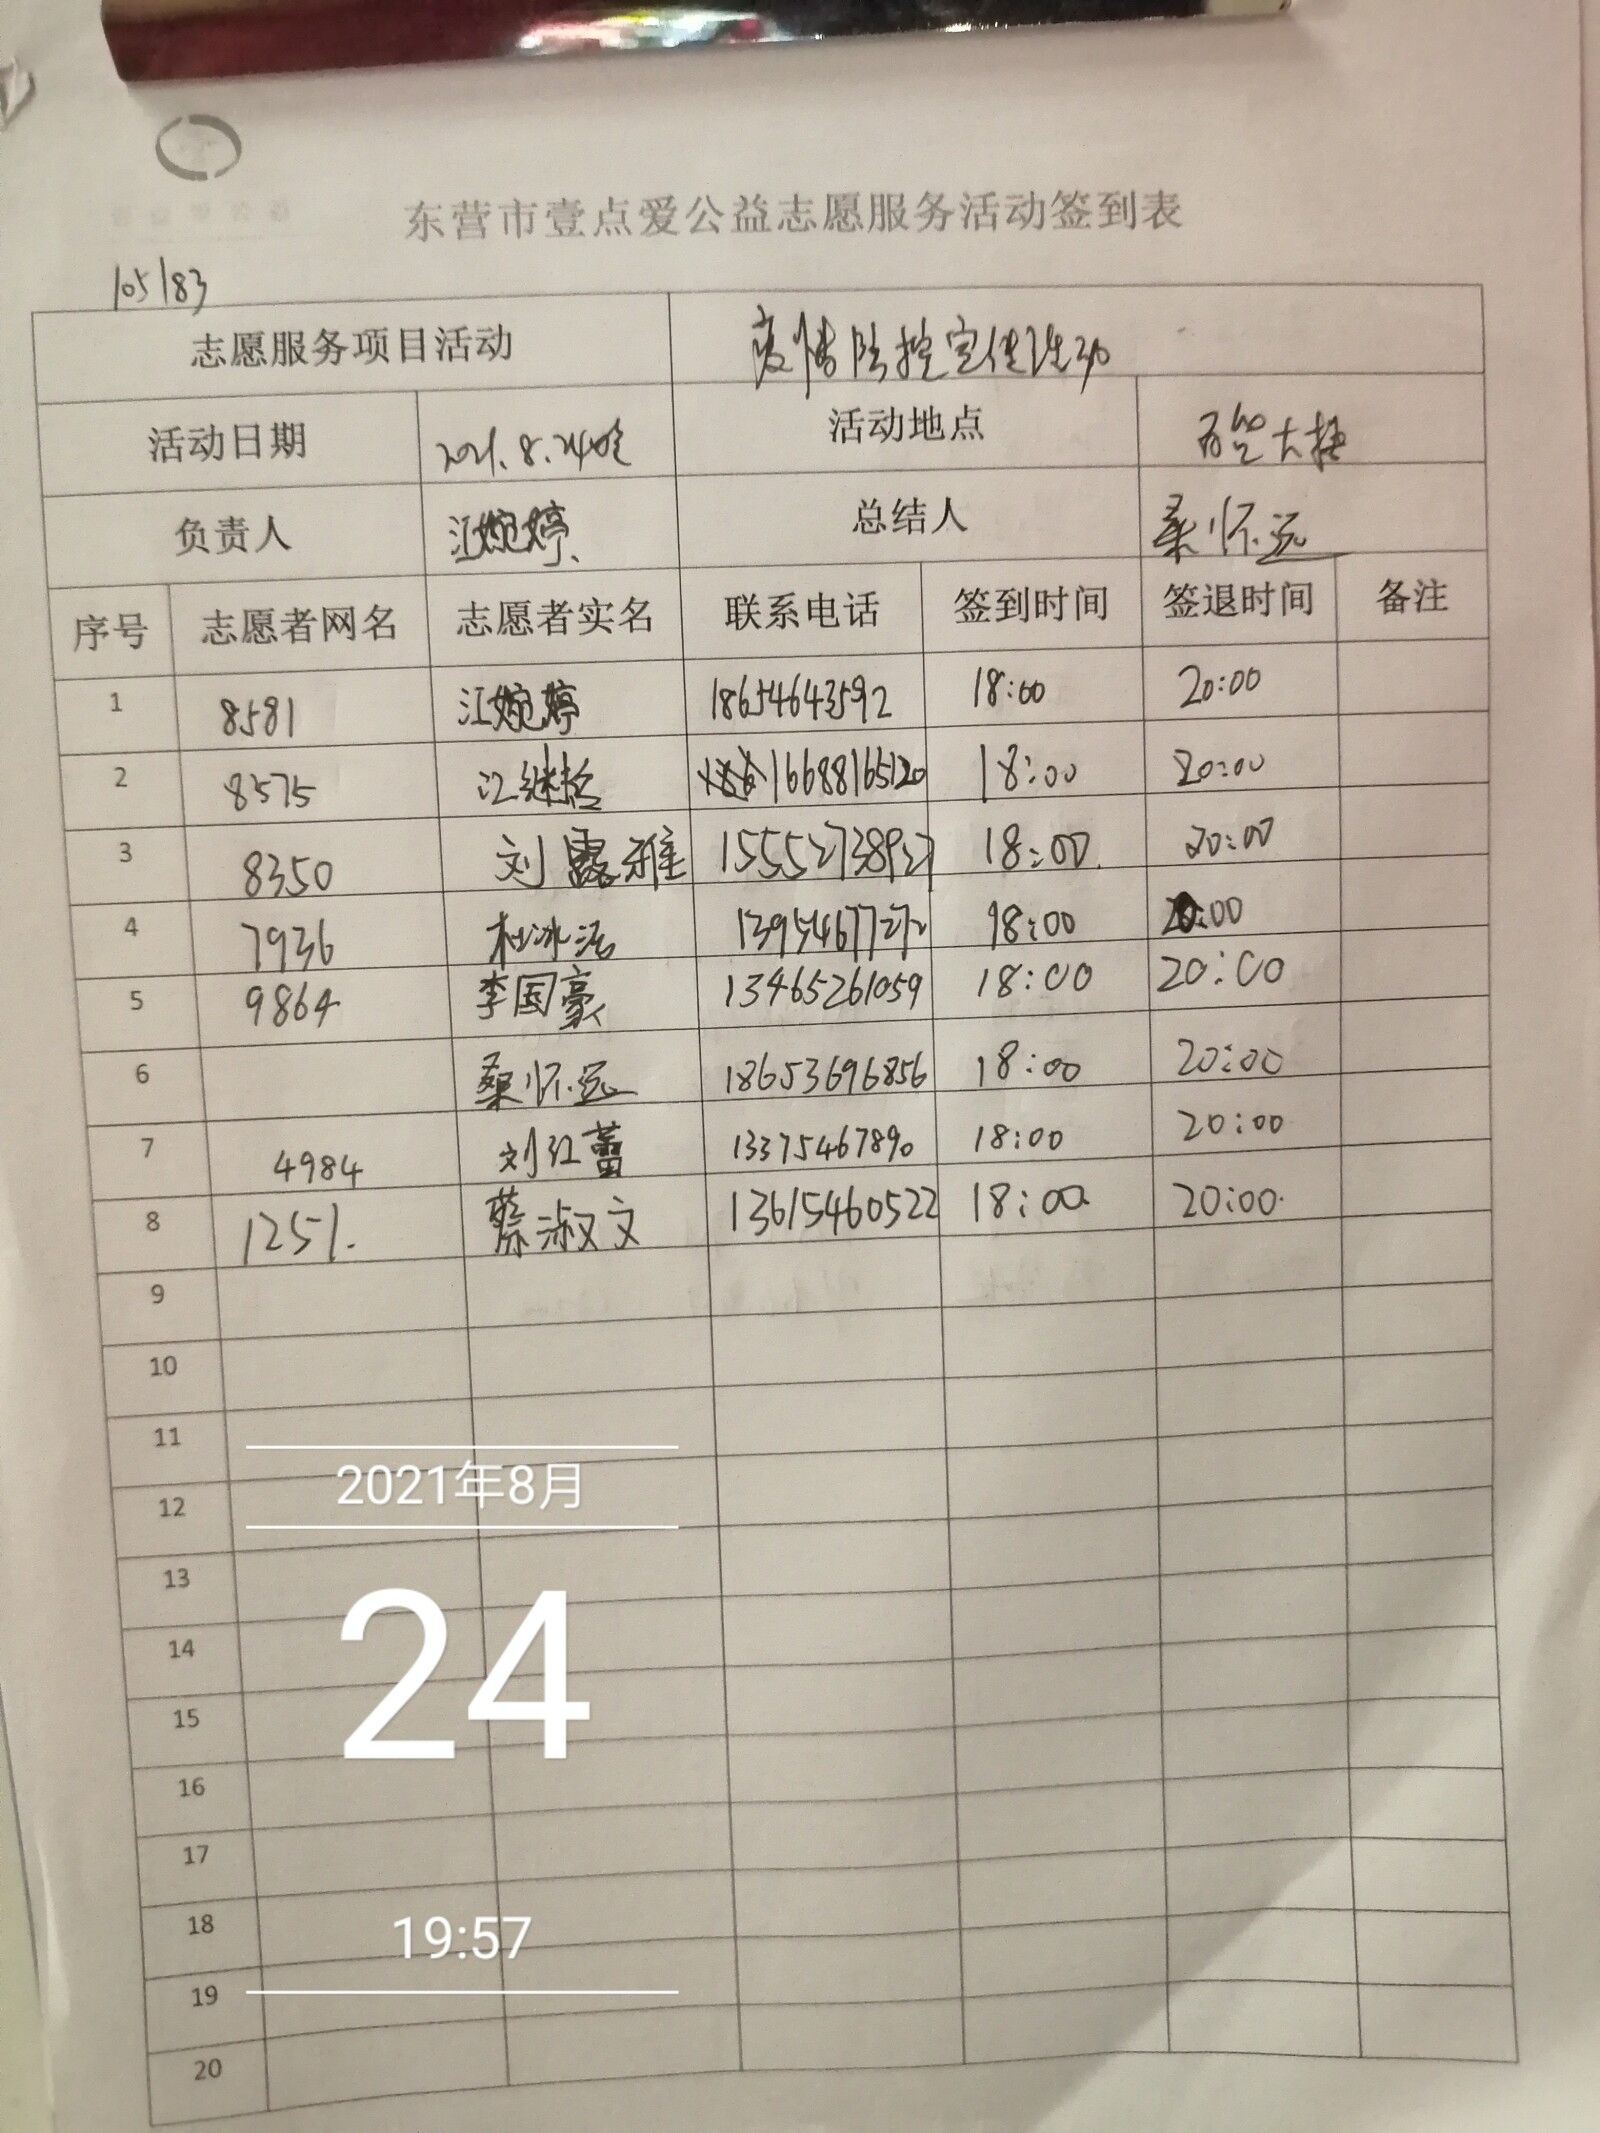 东营市壹点爱公益志愿服务活动签到表
105183
志愿服务项目活动 疫情防控宣传活动
活动日期 2021.8.24晚 活动地点 万贸大
负责人 江婉婷 总结人 桑怀远
序号 志愿者网名 志愿者实名 联系电话 签到时间 签退时间 备注
1 8581 江婉婷 18654643592 18:00 20:00
2 8575 江继 16688165120 18:00 20:00
3 8350 刘露雅 15552738927 18:00 20:00
4 7936 杜冰洁 13954677272 18:00 20:00
5 9864 李国豪 13465261059 18:00 20:00
6 桑怀远 18653696856 18:00 20:00
7 4984 刘红蕾 13375467890 18:00 20:00
8 1251. 蔡淑文 13615460522 18:00 20:00
9
10
11
2021年8月
12
13
24
14
15
16
17
18
19:57
19
20